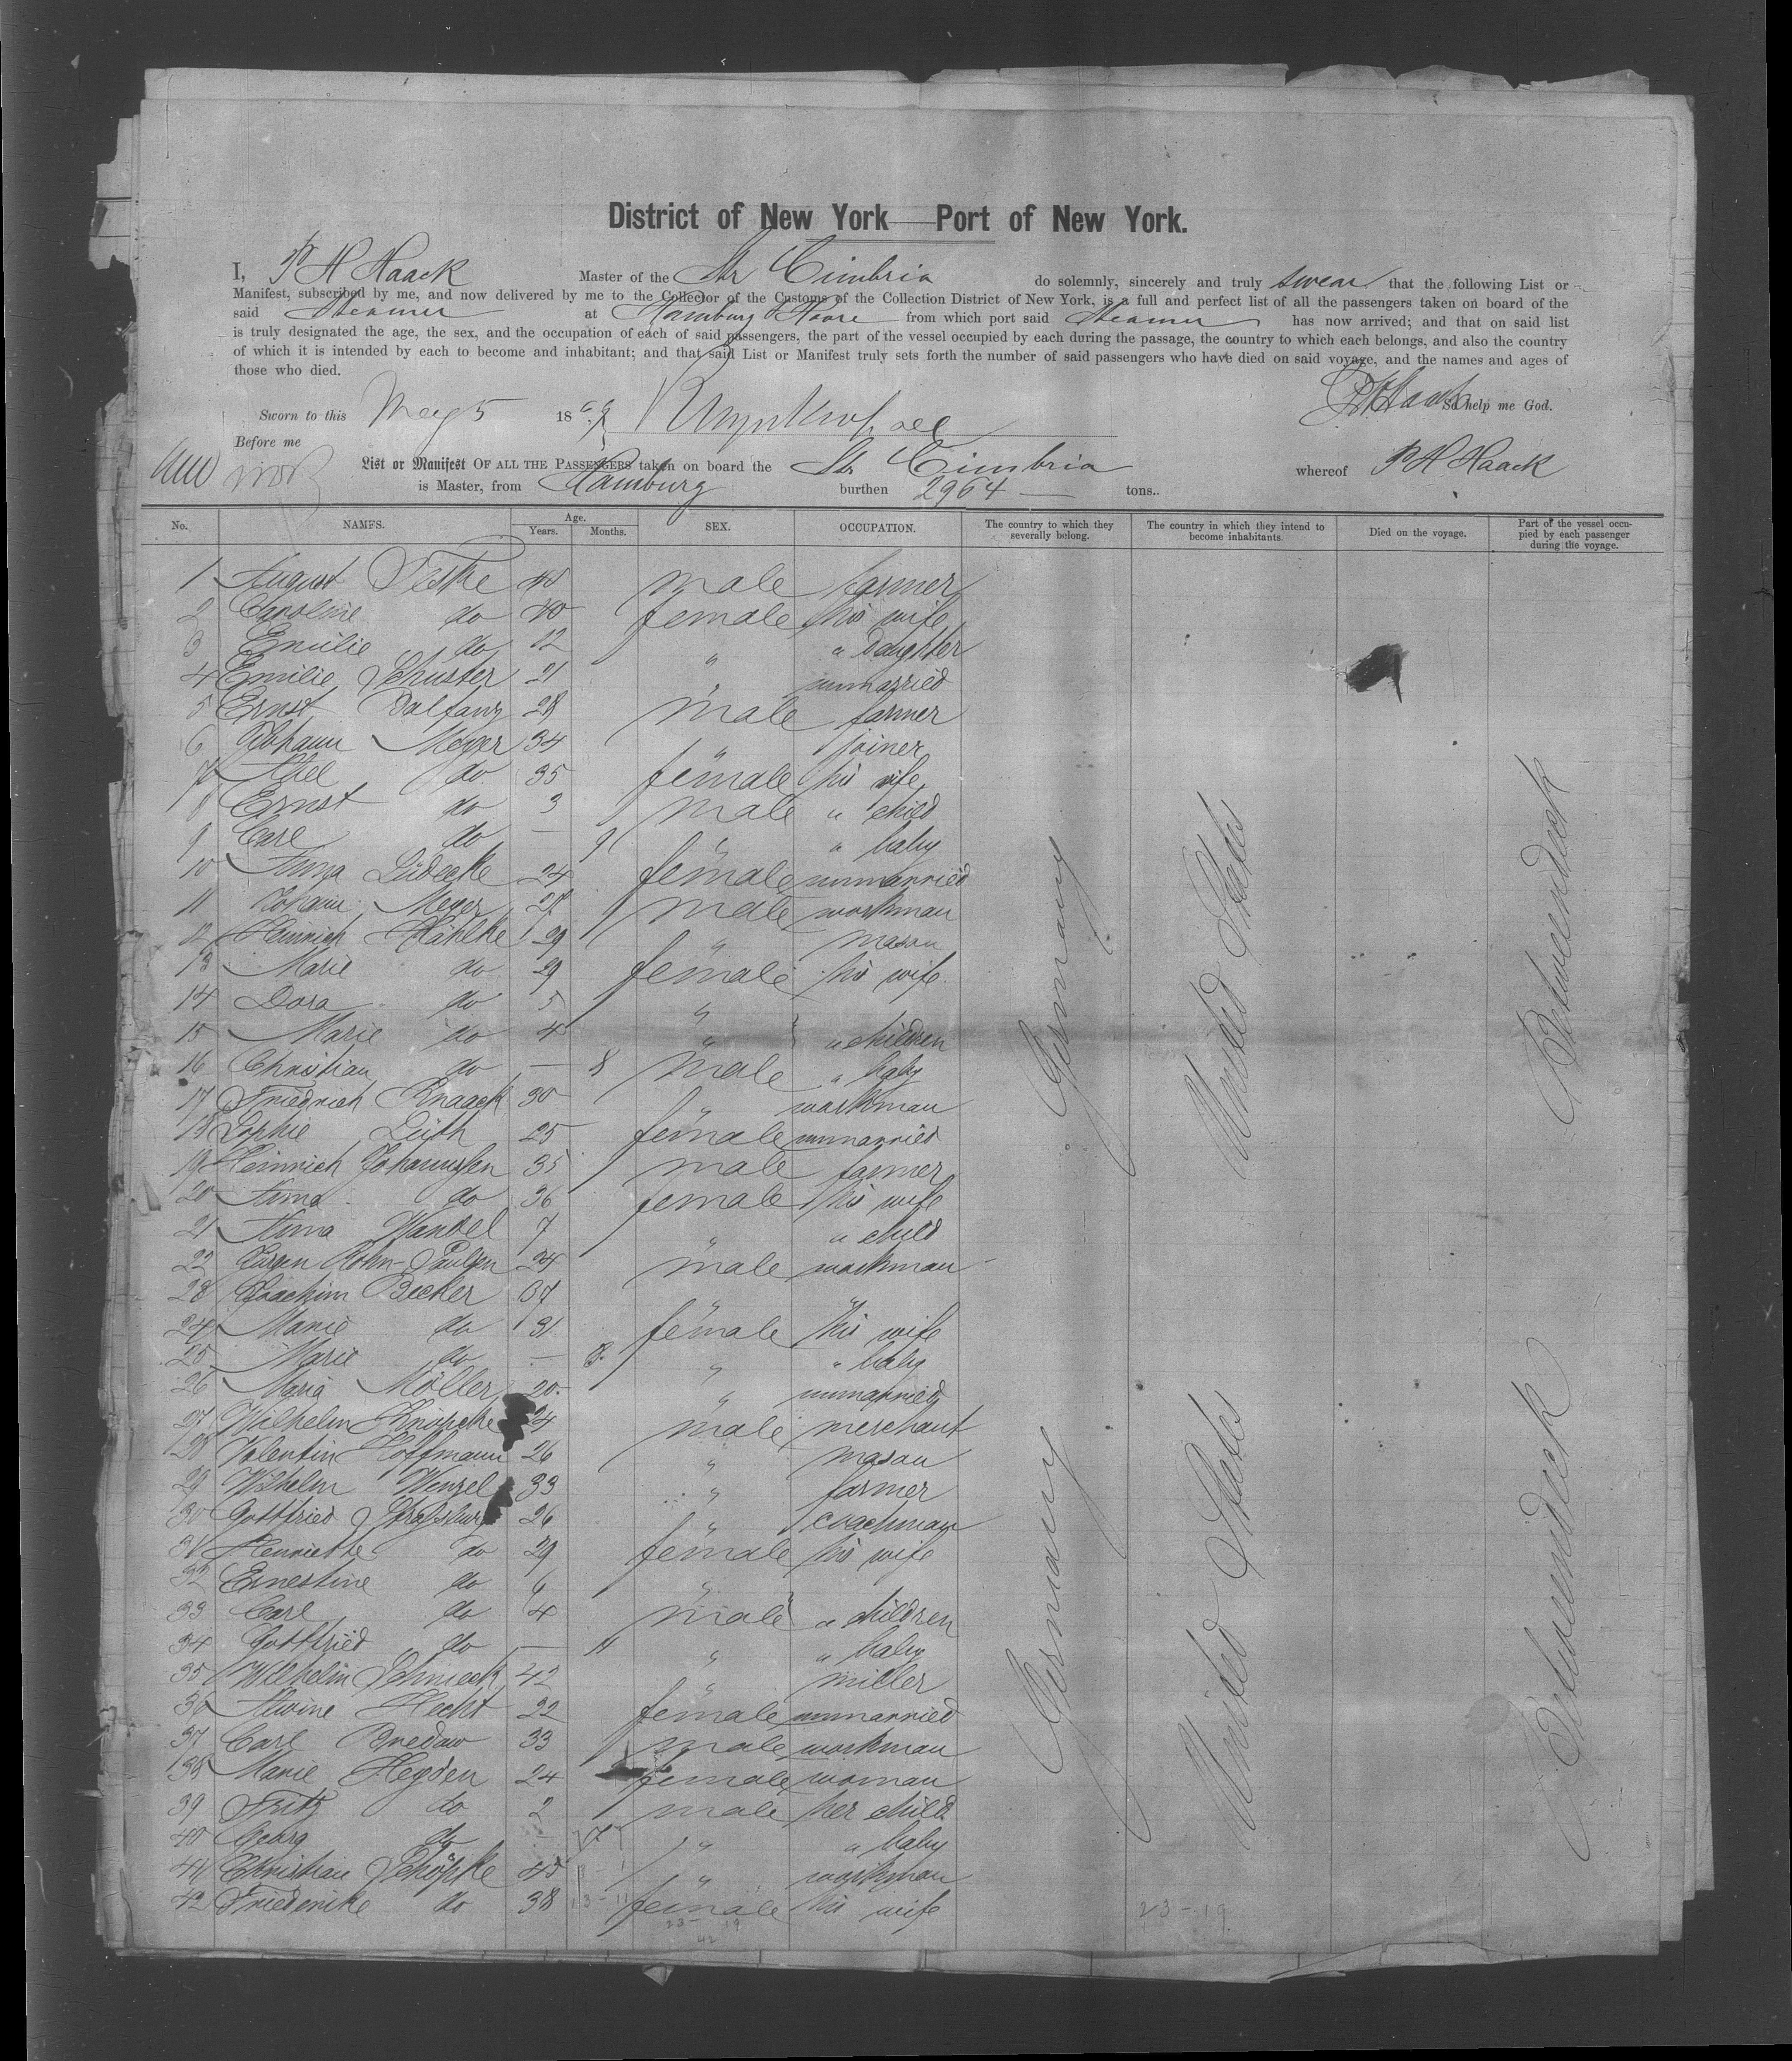 District of New York Port of New York.
I, P H Haack Master of the Str Cimbria do solemnly, sincerely and truly swear that the following List or
Manifest, subscribed by me, and now delivered by me to the Collector of the Customs of the Collection District of New York, is a full and perfect list of all the passengers taken on board of the
said Steamer at Hamburg from which port said Steamer has now arrived; and that on said list
is truly designated the age, the sex, and the occupation of each of said passengers, the part of the vessel occupied by each during the passage, the country to which each belongs, and also the country
of which it is intended by each to become and inhabitant; and that said List or Manifest truly sets forth the number of said passengers who have died on said voyage, and the names and ages of
those who died.
Sworn to this May 5 18 So help me God.
Before me
List or Manifest OF ALL THE PASSENGERS taken on board the Str Cimbria whereof P H Haack
is Master, from Hamburg burthen 2964 tons..
No. NAMES. Age. Years. Months. SEX. OCCUPATION. The country to which they severally belong. The country in which they intend to become inhabitants. Died on the voyage. Part of the vessel occupied by each passenger during the voyage.
1 August male farmer
2 Caroline do 40 female his wife
3 Emilie do 12 " " Daughter
4 Emilie Schuster 21 " unmarried
5 Ernst 28 male farmer
6 Johann Meyer 34 " joiner
7 do 35 female his wife
8 Ernst do 3 male " child
9 Carl do — 9 " " baby
10 Anna Lüdecke 24 female unmarried
11 Johann Meyer male workman
12 Heinrich Hählke 29 " mason
13 Marie do 29 female his wife
14 Dora do 5 "
15 Marie do 4 " " children
16 Christian do — 8 male " baby
17 Friedrich Knaack 30 " workman
18 Sophie 25 female unmarried
19 Heinrich Johannssen 35 male farmer
20 Anna do 36 female his wife
21 Anna 7 " " child
22 24 male workman
23 Joachim Becker 37 " "
24 Marie do 31 female his wife
25 Marie do — 8 " " baby
26 Maria Möller 20 " unmarried
27 Wilhelm 24 male merchant
28 Valentin Hoffmann 26 " mason
29 Wilhelm Wenzel 33 " farmer
30 Gottfried 26 " coachman
31 Henriette do 29 female his wife
32 Ernestine do 6 "
33 Carl do 4 male " children
34 Gottfried do — 11 " " baby
35 Wilhelm 42 " miller
36 Alwine Hecht 22 female unmarried
37 Carl Bredow 33 male workman
38 Marie Heyden 24 female woman
39 Fritz do 2 male her child
40 Georg do — " " baby
41 Christian Schöpke 45 " workman
42 Friederike do 38 female his wife
Germany
United States
Betweendeck
Germany
United States
Betweendeck
23-19
42
23-19